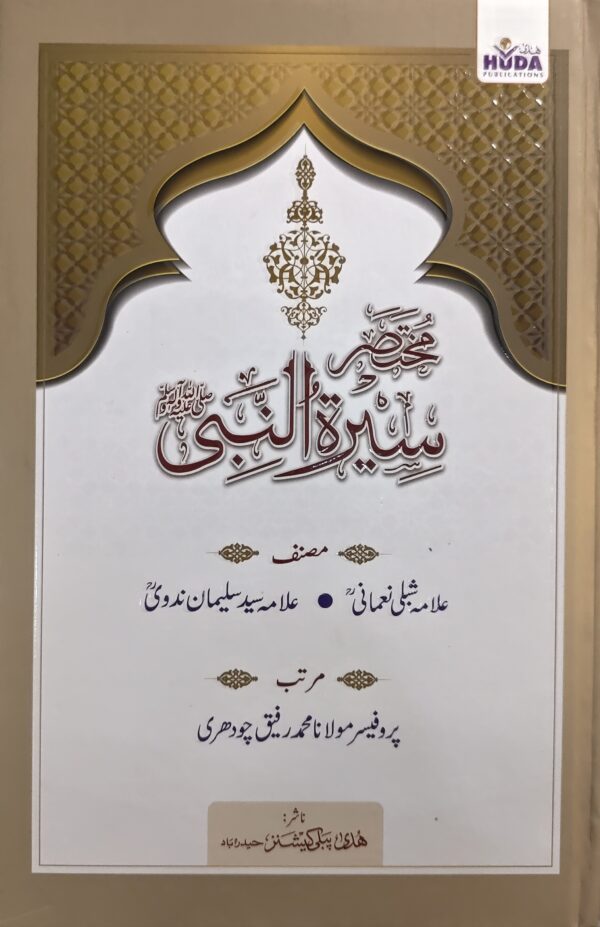 ھدیٰ
HUDA
PUBLICATIONS
مختصر
سِیْرۃُ النَّبِی ﷺ
مصنف
علامہ شبلی نعمانیؒ • علامہ سید سلیمان ندویؒ
مرتب
پروفیسر مولانا محمد رفیق چودھری
ناشر:
ھدیٰ پبلی کیشنز حیدرآباد